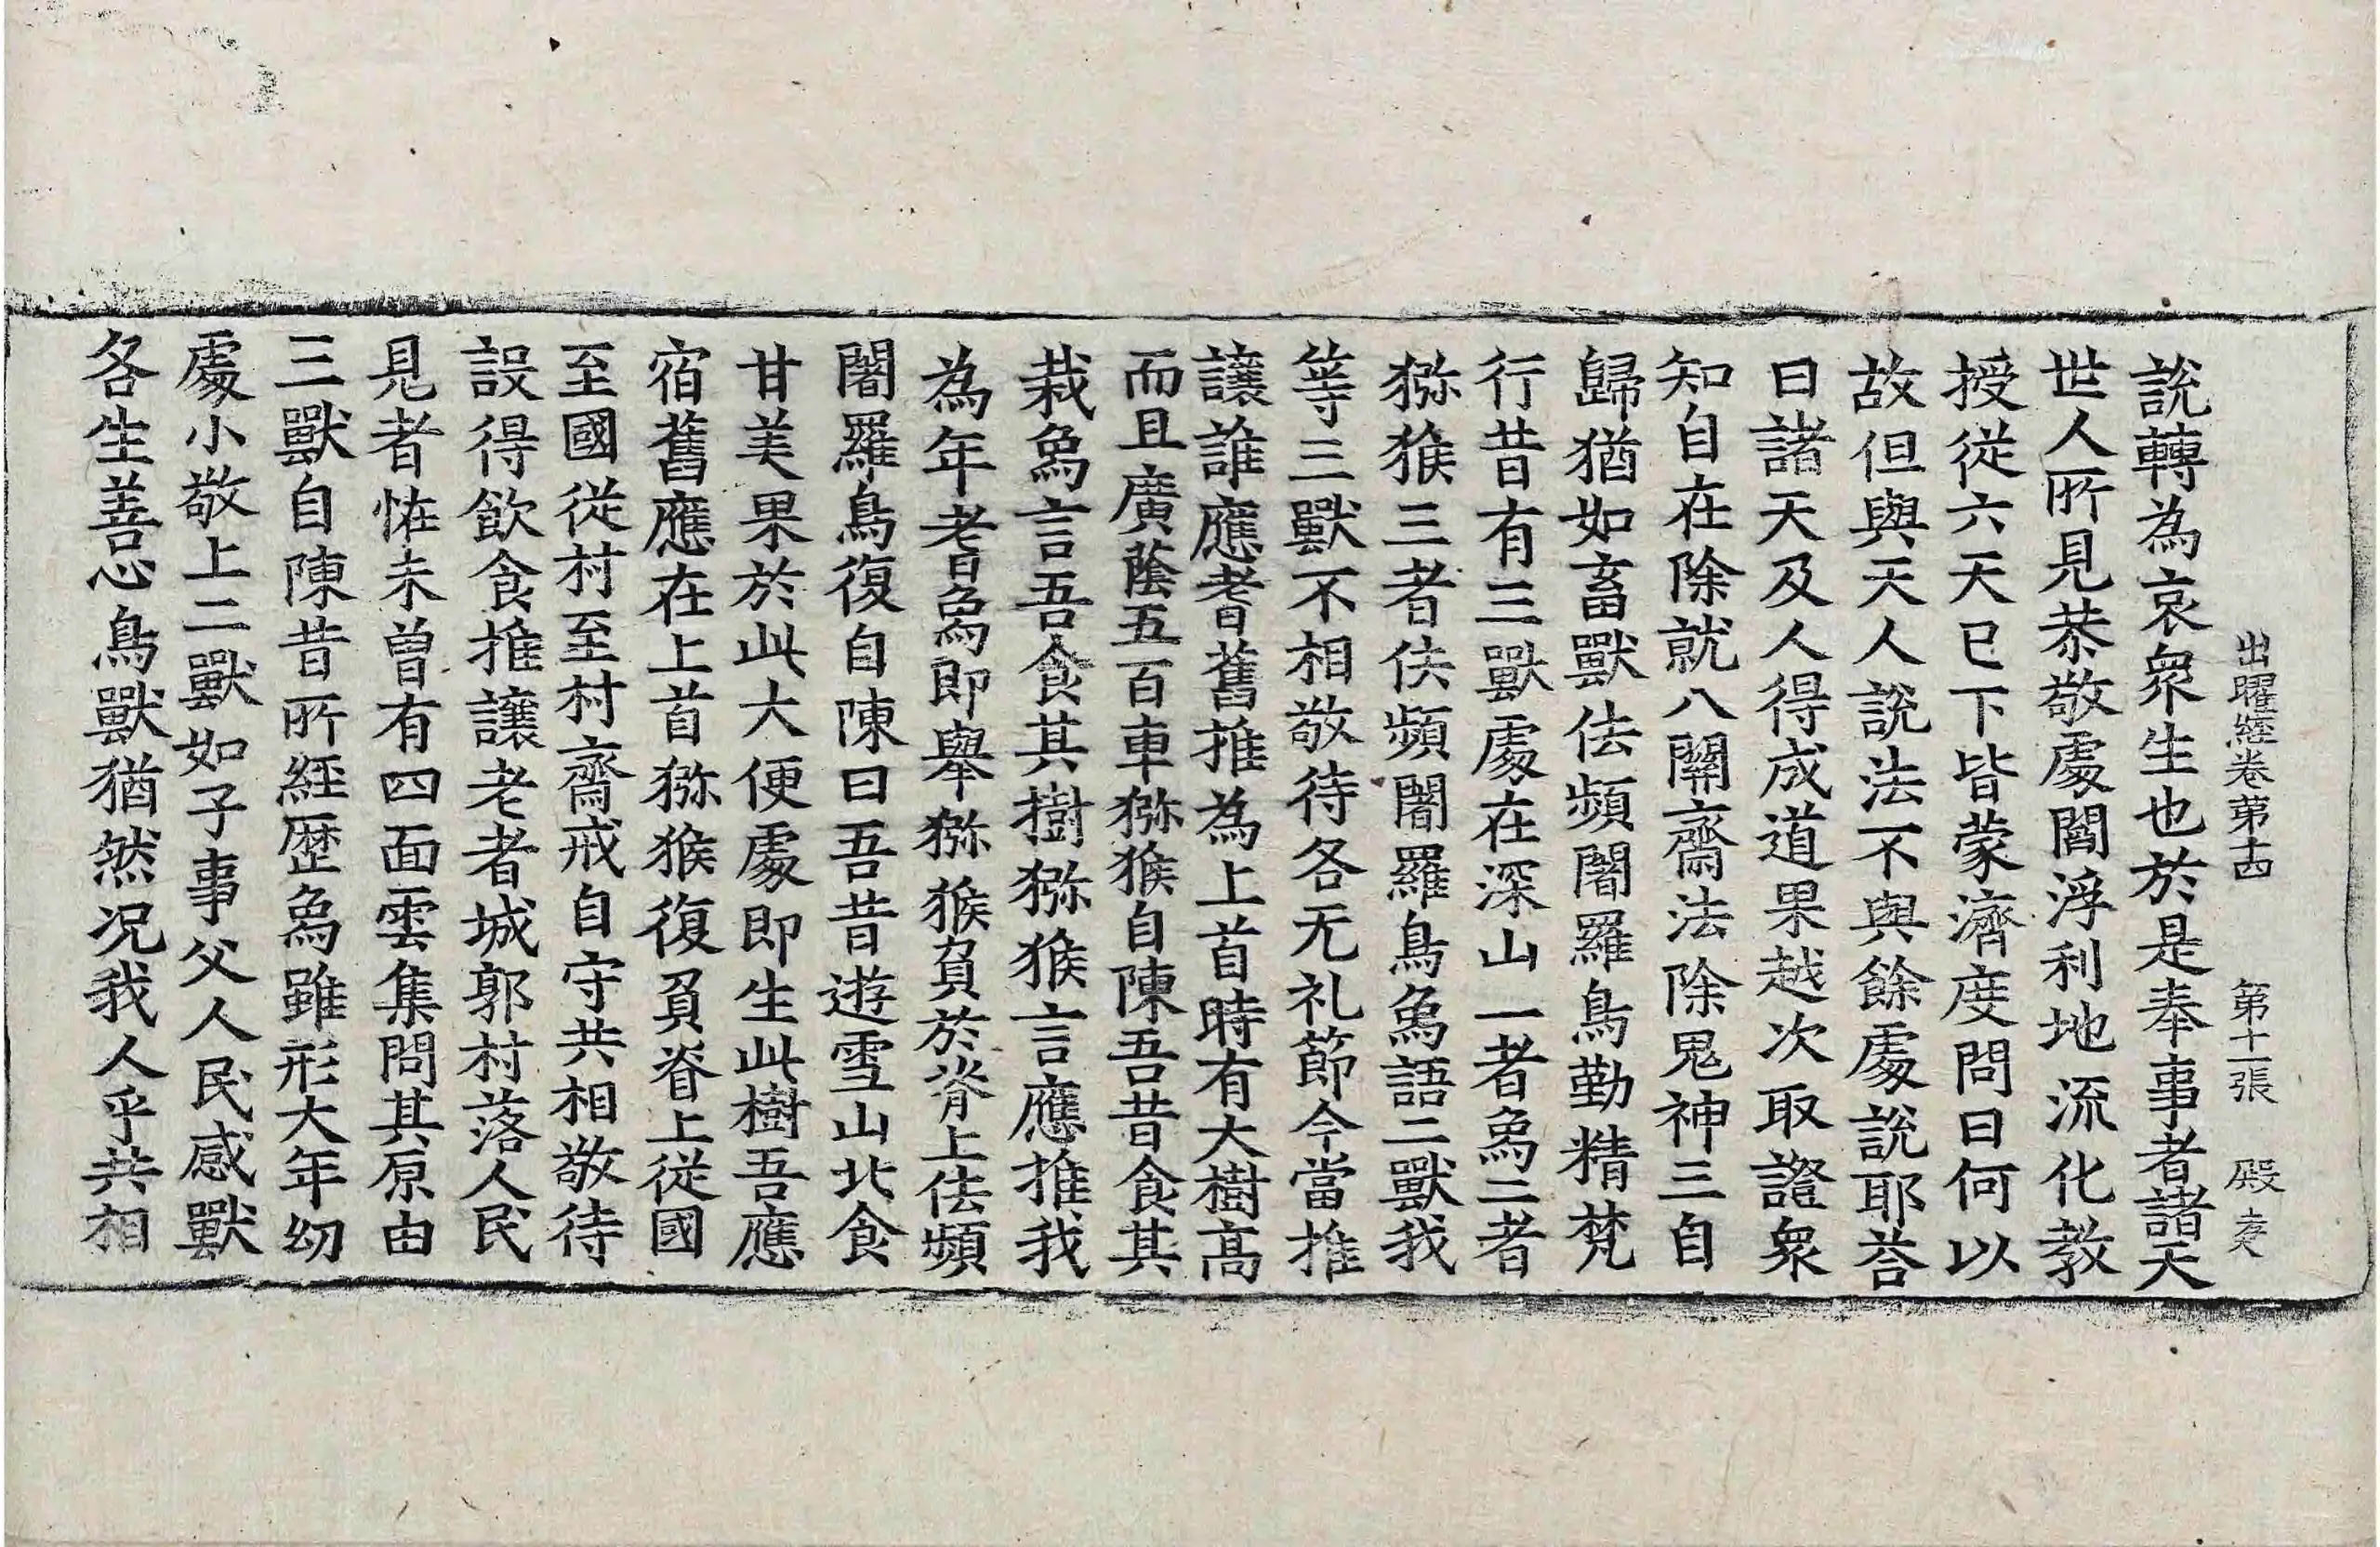 出曜經卷第十四 第十一張 殿
說轉為哀衆生也於是奉事者諸天
世人所見恭敬處閻浮利地流化教
授從六天已下皆蒙濟度問曰何以
故但與天人說法不與餘處說耶荅
曰諸天及人得成道果越次取證衆
知自在除就八關齋法除鬼神三自
歸猶如畜獸佉頻闍羅鳥勤精梵
行昔有三獸處在深山一者象二者
獼猴三者佉頻闍羅鳥象語二獸我
等三獸不相敬待各无礼節今當推
讓誰應耆舊推為上首時有大樹高
而且廣蔭五百車獼猴自陳吾昔食其
栽象言吾食其樹獼猴言應推我
為年耆象即舉獼猴負於脊上佉頻
闍羅鳥復自陳曰吾昔遊雪山北食
甘美果於此大便處即生此樹吾應
宿舊應在上首獼猴復負脊上從國
至國從村至村齋戒自守共相敬待
設得飲食推讓老者城郭村落人民
見者恠未曾有四面雲集問其原由
三獸自陳昔所經歷象雖形大年幼
處小敬上二獸如子事父人民感獸
各生善心鳥獸猶然况我人乎共相